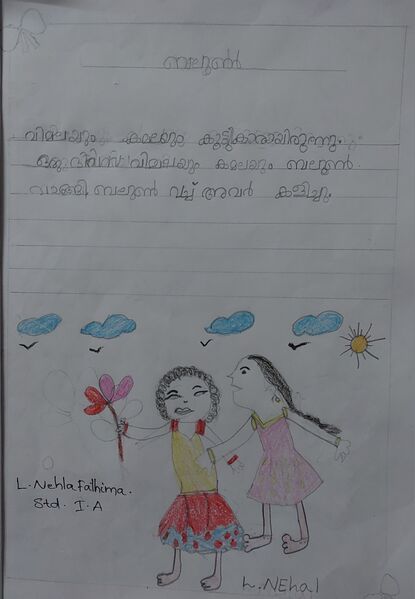 ബലൂൺ
വിമലയും കമലയും കൂട്ടുകാരായിരുന്നു.
ഒരു ദിവസം വിമലയും കമലയും ബലൂൺ
വാങ്ങി. ബലൂൺ വച്ച് അവർ കളിച്ചു.
L. Nehla Fathima.
Std. I. A
L. NEhal